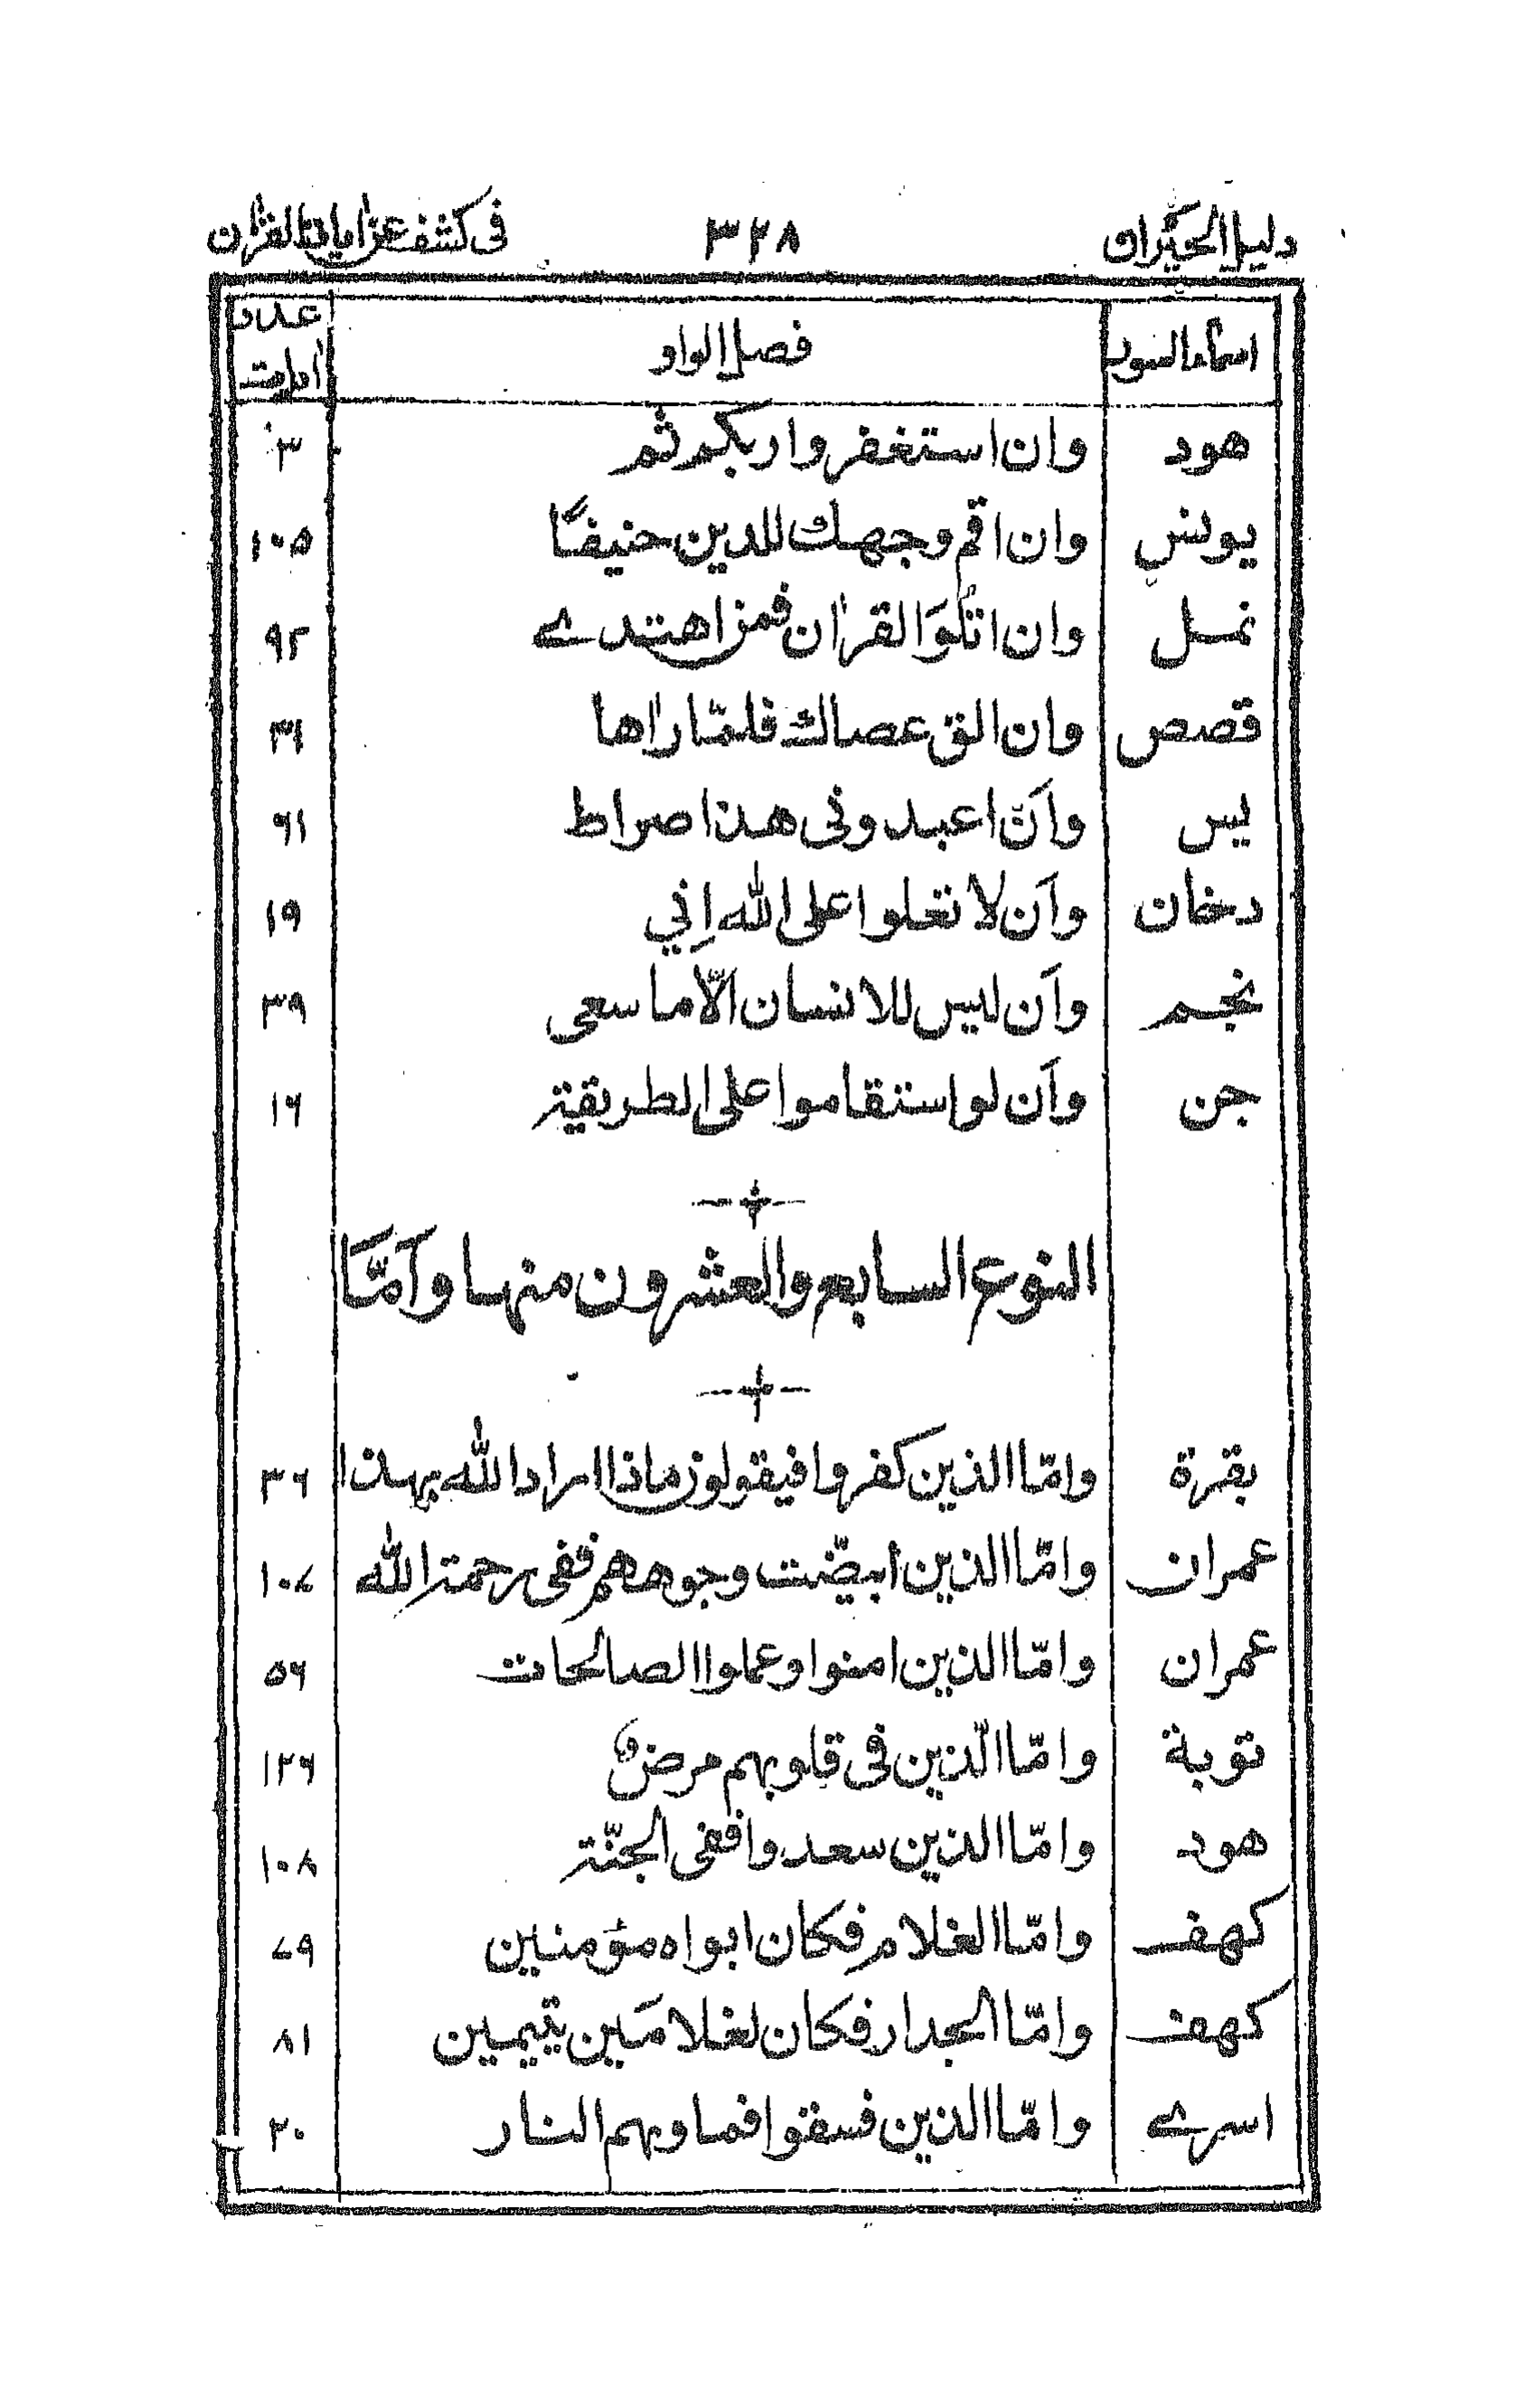 دليل الحيران ٣٢٨ فى كشف عن ايات القرٰان
اسماء السور فصل الواو عدد أيات
هود وان استغفروا ربكم ثم ٣
يونس وان اقم وجهك للدين حنيفًا ١٠٥
نمل وان اتلُوَا القرٰان فمن اهتدے ٩٢
قصص وان الق عصاك فلمّا راٰها ٣١
يس واَنِ اعبدونى هذا صراط ٦١
دخان واَن لا تعلوا على الله اِنّي ١٩
نجم واَن ليس للانسان الّا ما سعى ٣٩
جن واَن لو استقاموا على الطريقة ١٦
النوع السابع والعشرون منها واَمَّا
بقرة وامّا الذين كفروا فيقولون ماذا اراد الله بهذا ٢٦
عمران وامّا الذين ابيضّت وجوههم ففى رحمة الله ١٠٧
عمران وامّا الذين امنوا وعملوا الصالحات ٥٦
توبة وامّا الّذين فى قلوبهم مرض ١٢٦
هود وامّا الذين سعدوا ففى الجنّة ١٠٨
كهف وامّا الغلام فكان ابواه مؤمنين ٧٩
كهف وامّا الجدار فكان لغلامَين يتيمين ٨١
اسرے وامّا الذين فسقوا فماوٰىهم النار ٢٠